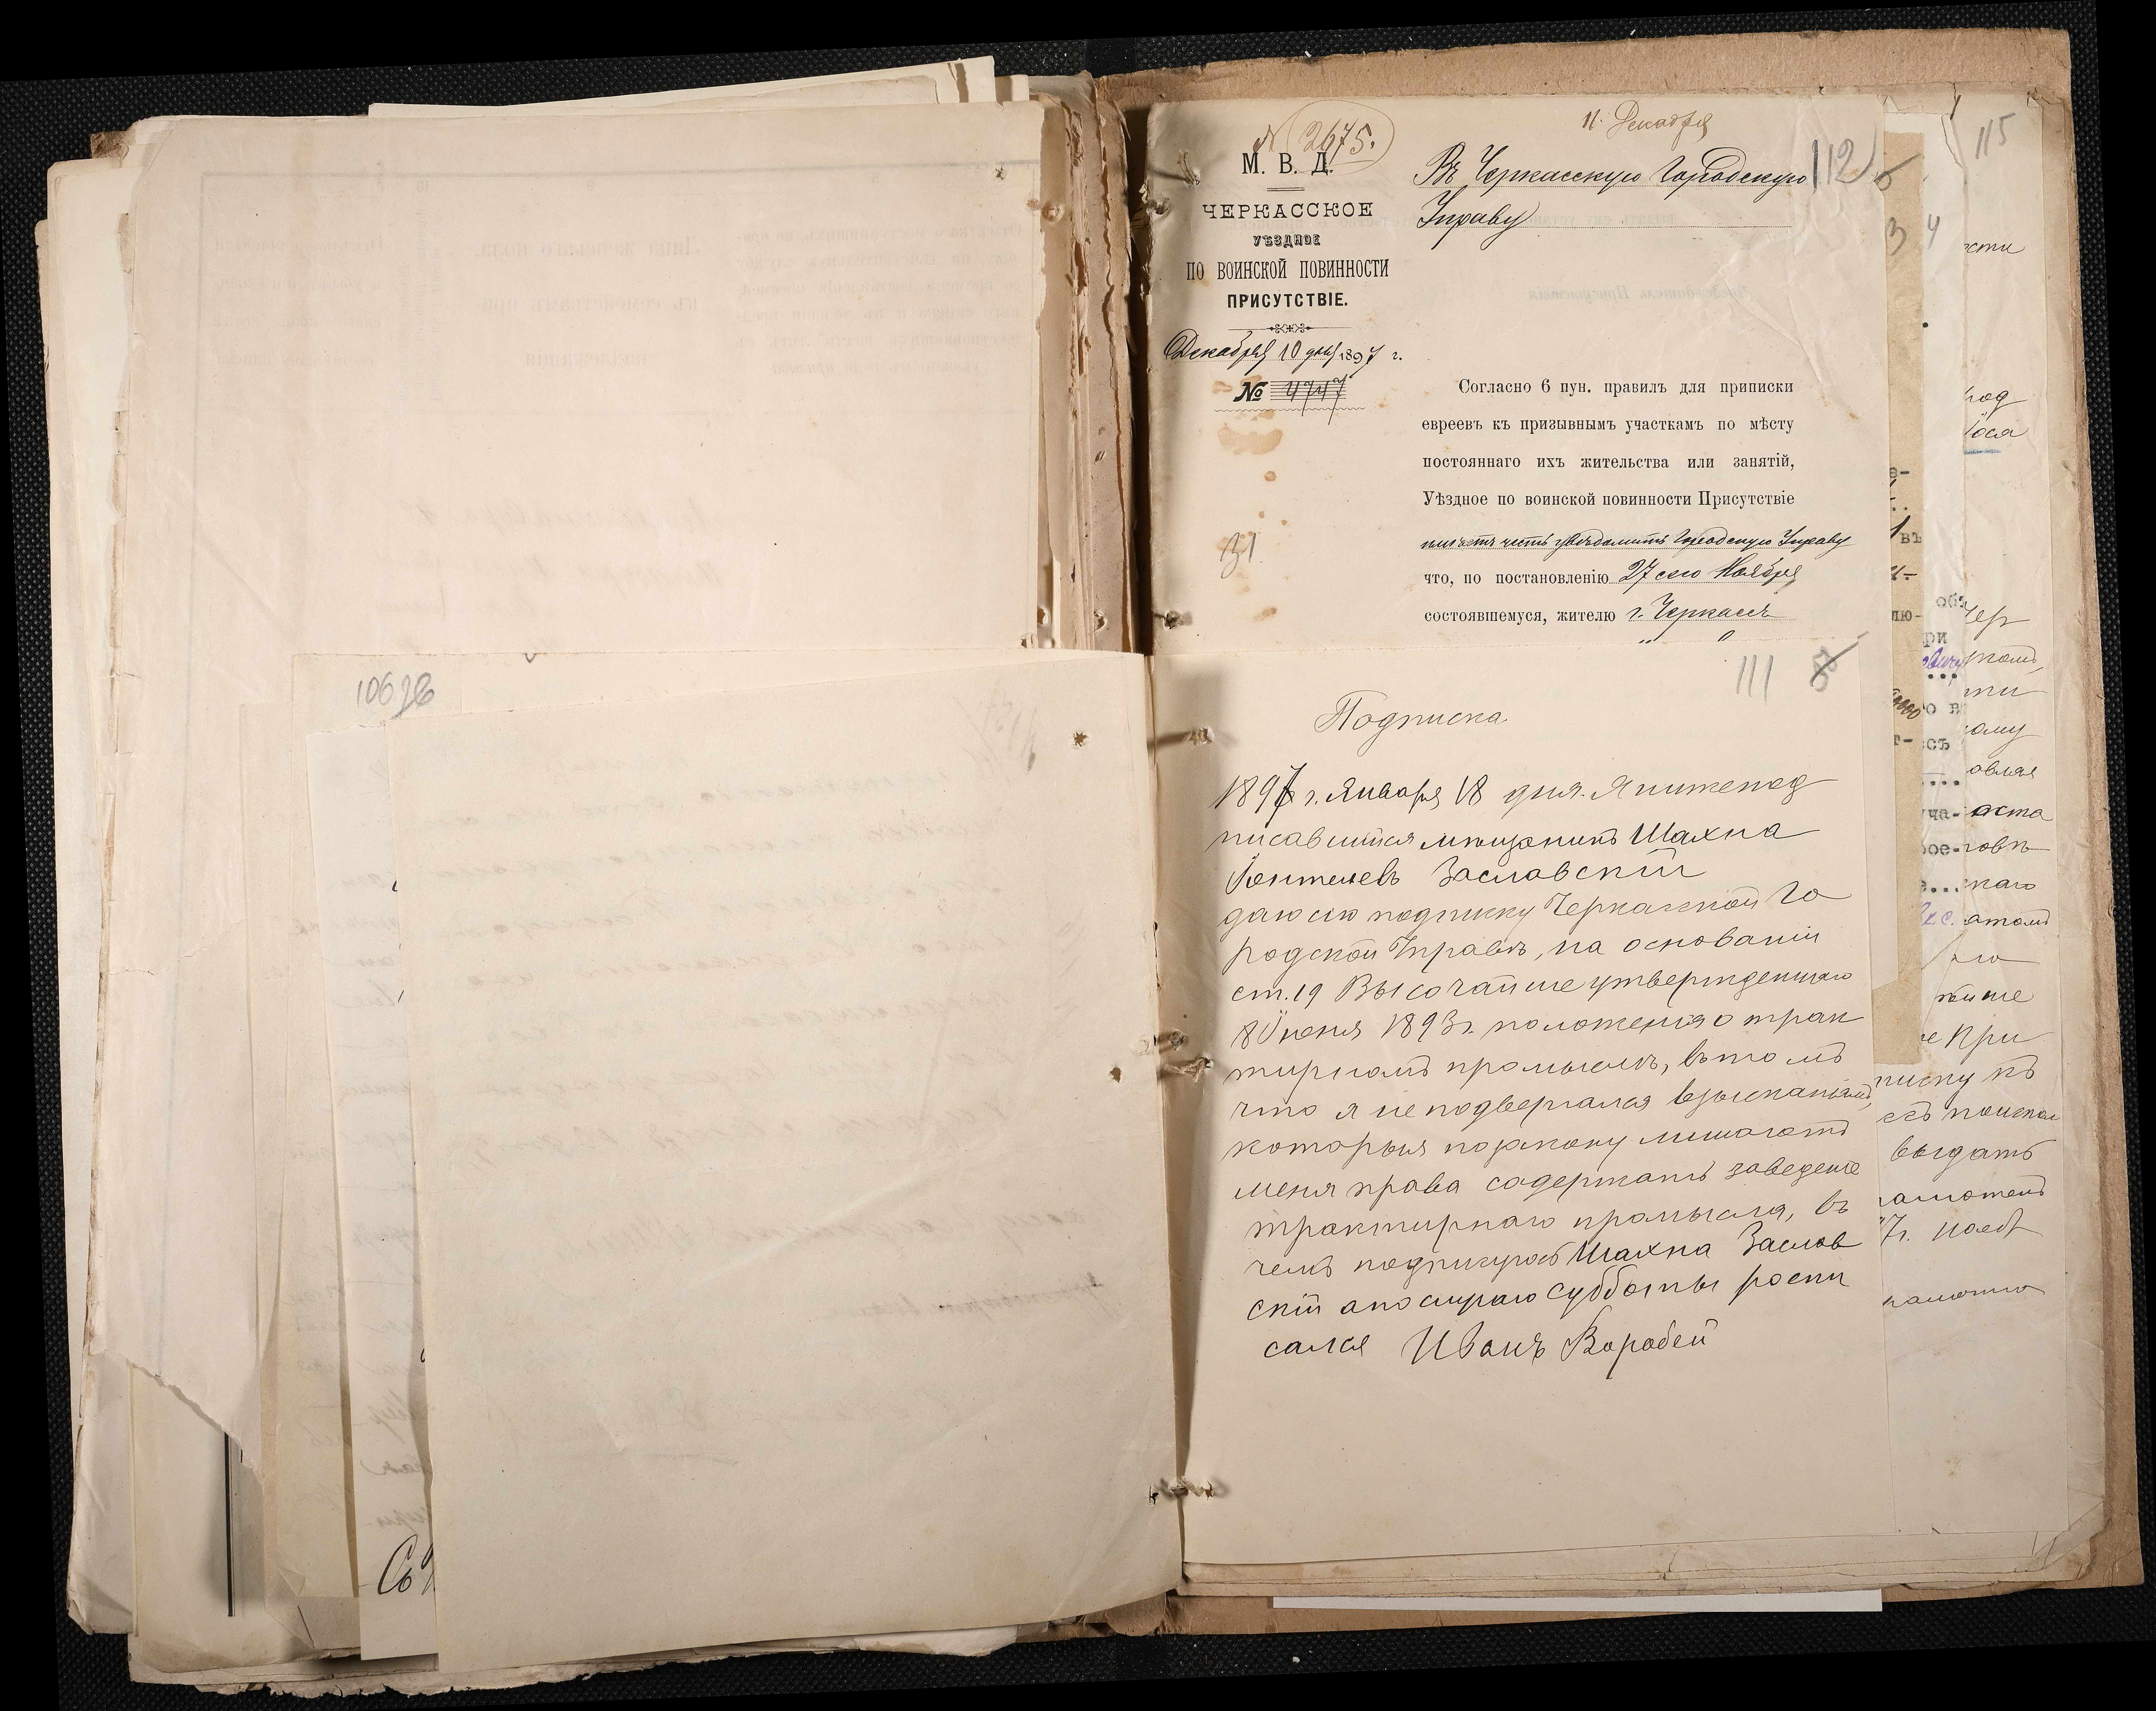 11. Декабря
№ 2675.
М. В. Д.
ЧЕРКАССКОЕ
УѢЗДНОЕ
ПО ВОИНСКОЙ ПОВИННОСТИ
ПРИСУТСТВІЕ.
Декабря 10 дня 1897 г.
№ 4747
31
Въ Черкасскую Городскую
Управу
112
115
Согласно 6 пун. правилъ для приписки
евреевъ къ призывнымъ участкамъ по мѣсту
постояннаго ихъ жительства или занятій,
Уѣздное по воинской повинности Присутствіе
имѣетъ честь увѣдомить Городскую Управу
что, по постановленію 27 сего Ноября
состоявшемуся, жителю г. Черкассъ
111
Подписка
1897 г. Января 18 дня. Я нижепод
писавшийся мещанинъ Шахна
Заславскій
даю сію подписку Черкасской Го
родской Управѣ, на основаніи
ст. 19 Высочайше утвержденнаго
8 Июня 1893 г. положенія о трак
тирномъ промыслѣ, въ томъ
что я не подвергался взысканіямъ,
которыя по закону лишаютъ
меня права содержать заведеніе
трактирнаго промысла, въ
чемъ подпишусь Шахна Заслав
скій а по случаю субботы роспи
сался Иванъ Воробей
106